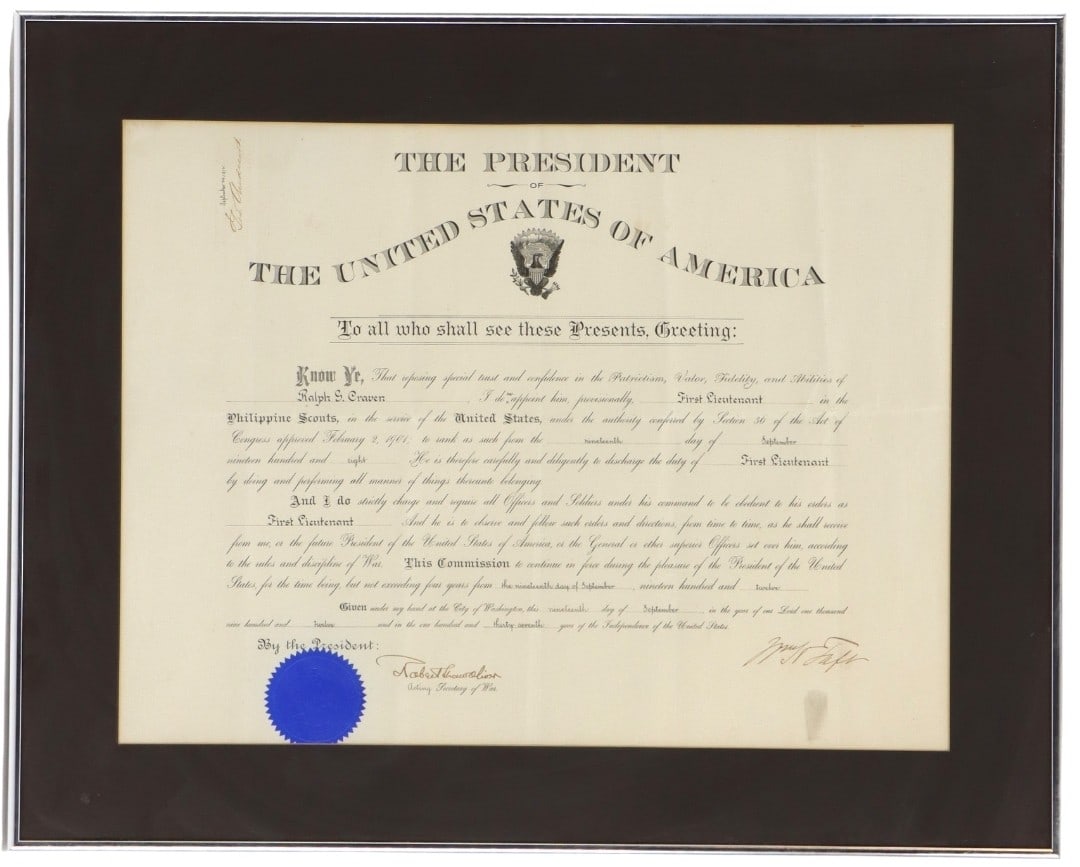 THE PRESIDENT
OF
THE UNITED STATES OF AMERICA
To all who shall see these Presents, Greeting:
Know Ye, That reposing special trust and confidence in the Patriotism, Valor, Fidelity, and Abilities of
Ralph S. Craven, I do appoint him, provisionally, First Lieutenant in the
Philippine Scouts, in the service of the United States, under the authority conferred by Section 36 of the Act of
Congress approved February 2, 1901, to rank as such from the nineteenth day of September
nineteen hundred and eight He is therefore carefully and diligently to discharge the duty of First Lieutenant
by doing and performing all manner of things thereunto belonging
And I do strictly charge and require all Officers and Soldiers under his command to be obedient to his orders as
First Lieutenant And he is to observe and follow such orders and directions, from time to time, as he shall receive
from me, or the future President of the United States of America, or the General or other superior Officers set over him, according
to the rules and discipline of War. This Commission to continue in force during the pleasure of the President of the United
States, for the time being, but not exceeding four years from the nineteenth day of September, nineteen hundred and twelve
Given under my hand at the City of Washington, this nineteenth day of September, in the year of our Lord one thousand
nine hundred and twelve and in the one hundred and thirty-seventh year of the Independence of the United States.
By the President:
Wm H Taft
Robert Shaw Oliver
Acting Secretary of War.